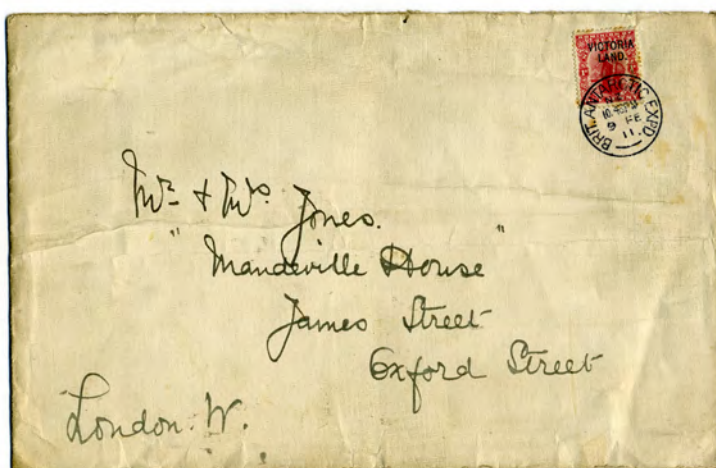 VICTORIA
LAND.
BRIT. ANTARCTIC EXPD
9 FE
11.
Mr & Mrs. Jones.
"Mandeville House"
James Street
Oxford Street
London. W.